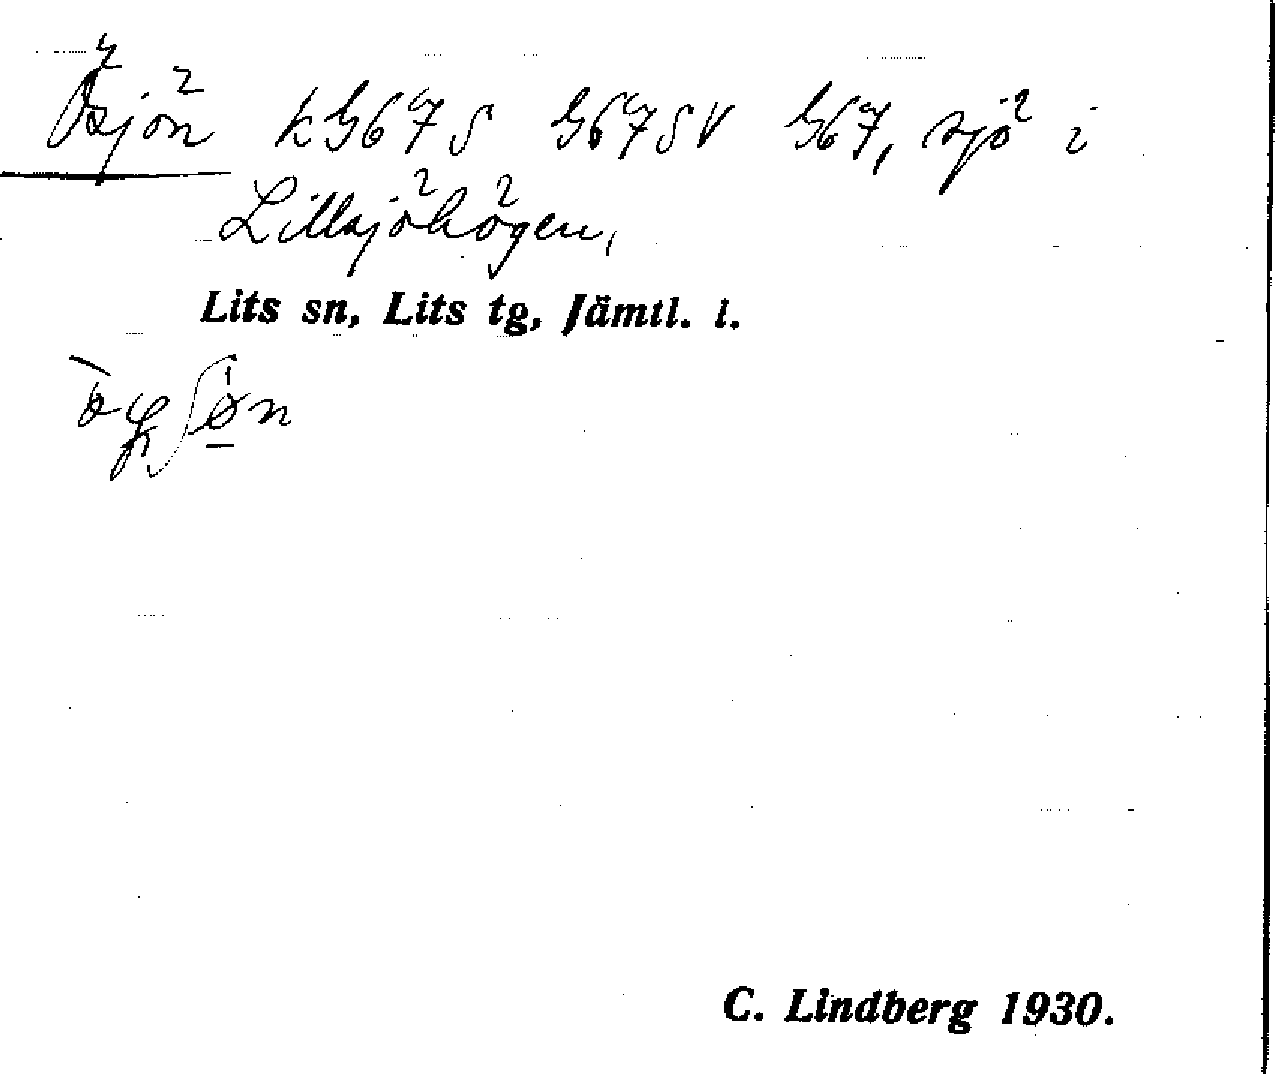 Ösjön kG67S G67SV G67, sjö i
Lillsjöhögen,
Lits sn, Lits tg, Jämtl. l.
C. Lindberg 1930.